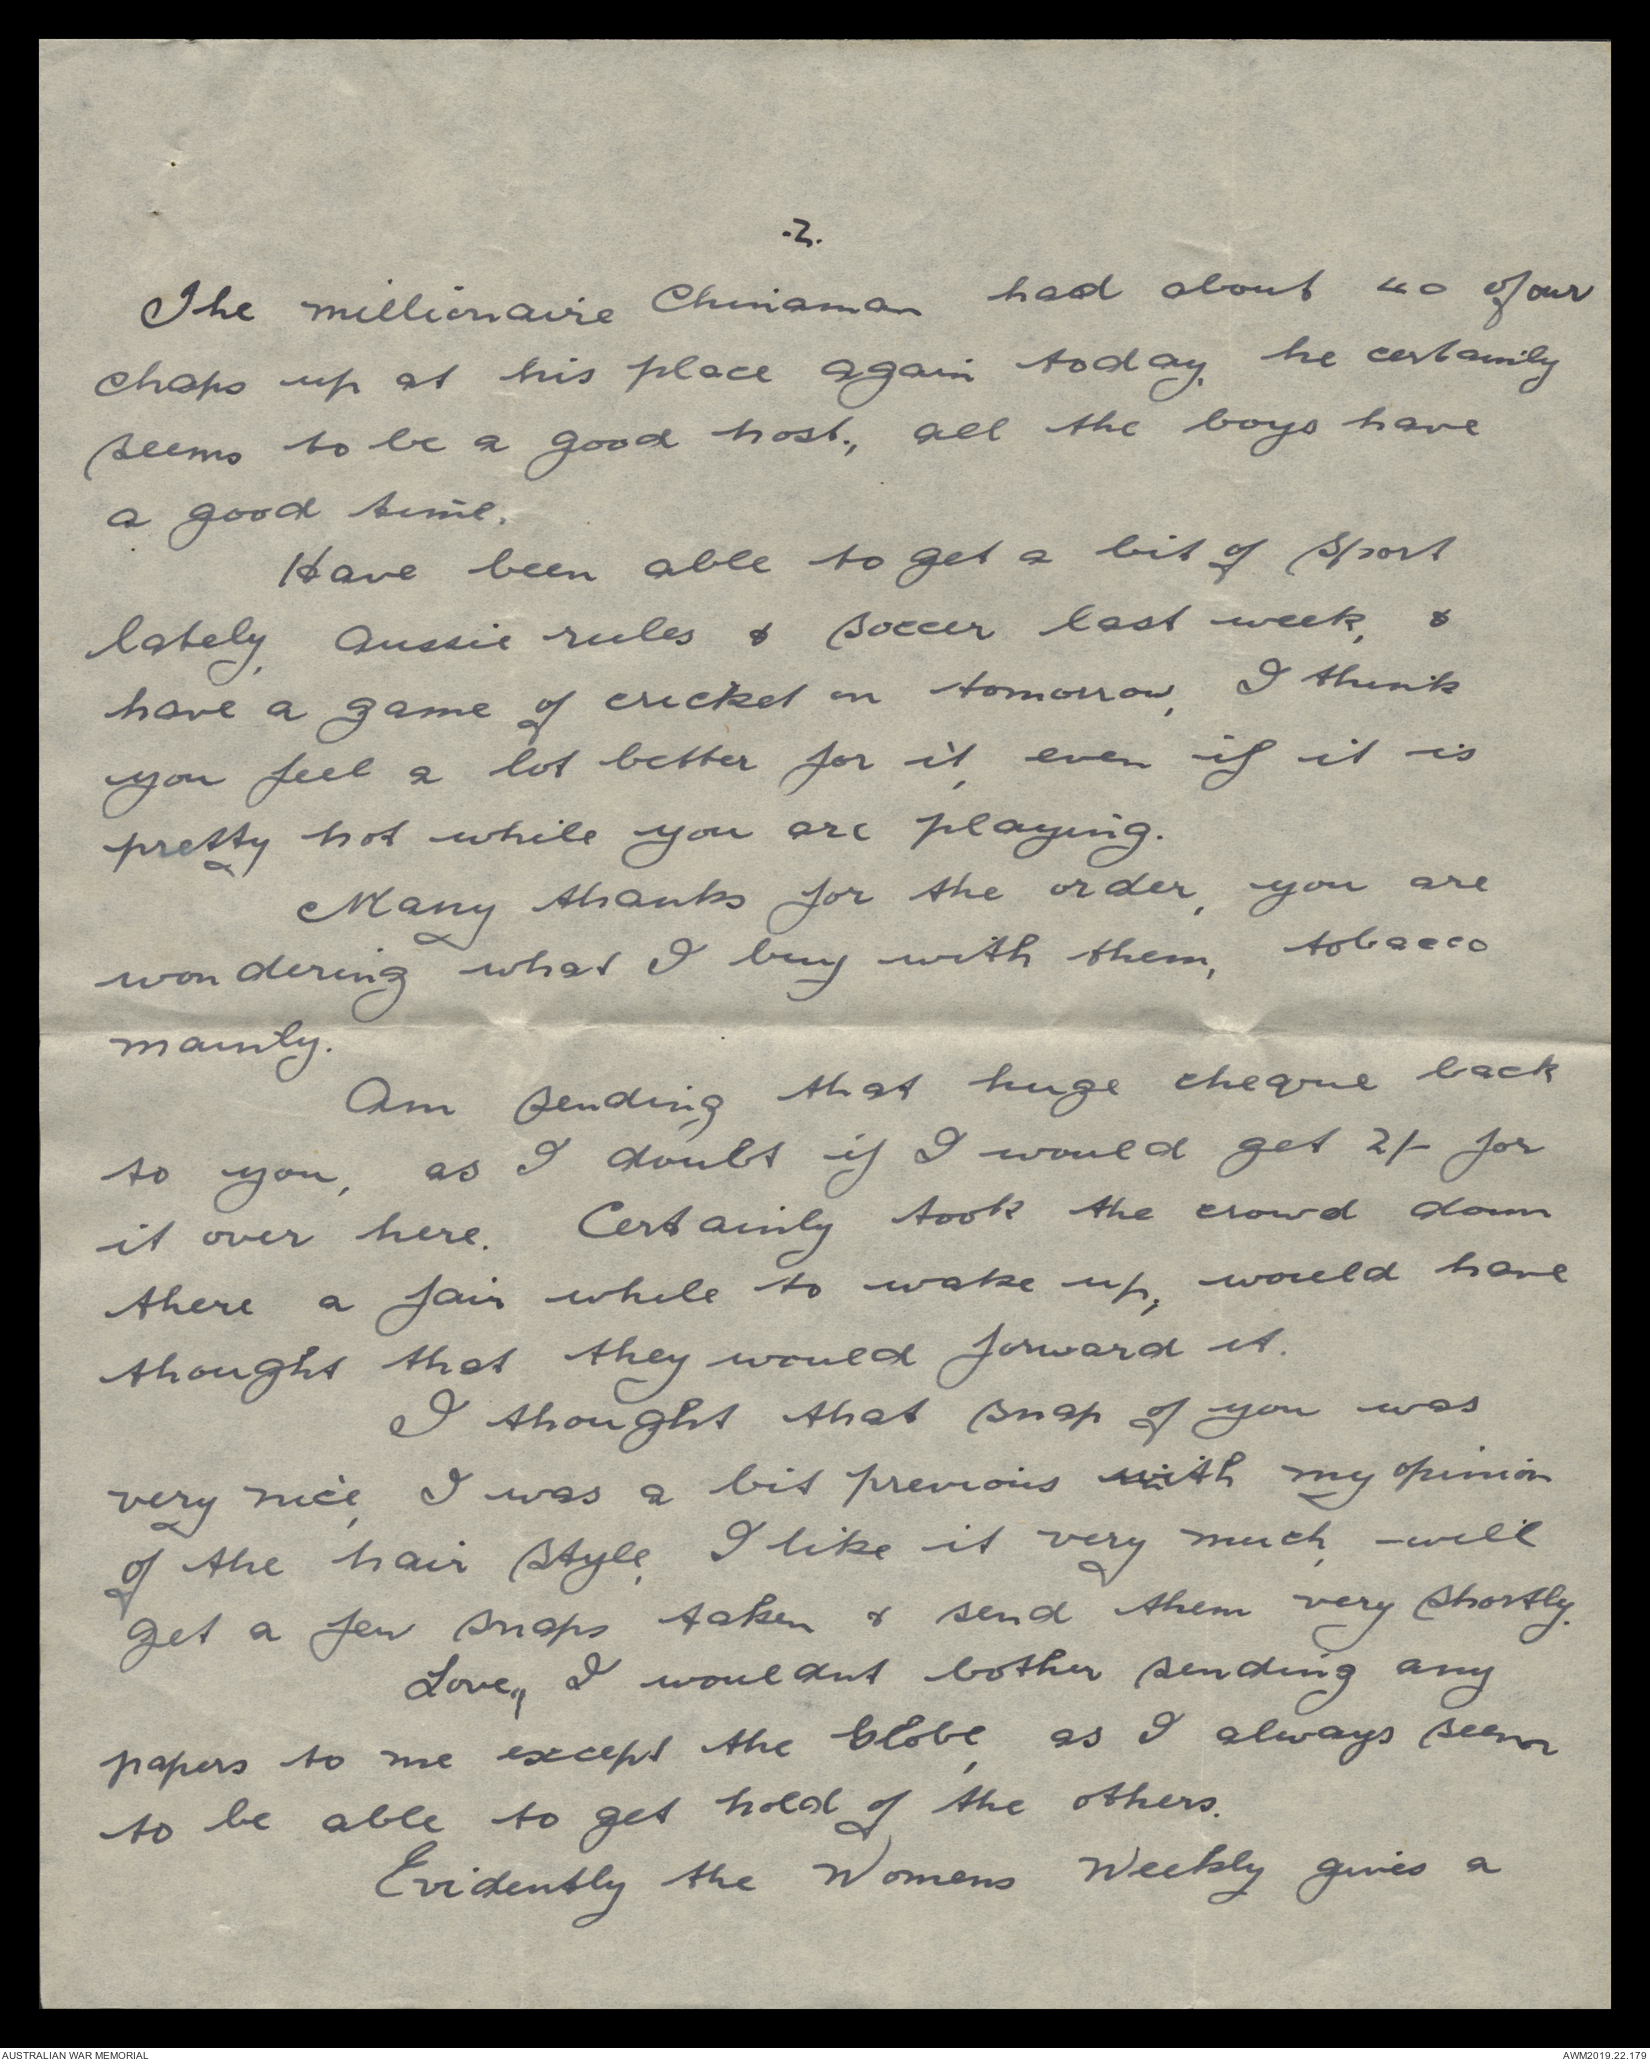 .2.
The millionaire Chinaman had about 40 of our
chaps up at his place again today, he certainly
seems to be a good host., all the boys have
a good time.
Have been able to get a bit of sport
lately, Aussie rules & soccer last week, &
have a game of cricket on tomorrow, I think
you feel a lot better for it, even if it is
pretty hot while you are playing.
Many thanks for the order, you are
wondering what I buy with them, tobacco
mainly.
Am sending that huge cheque back
to you, as I doubt if I would get 2/- for
it over here. Certainly took the crowd down
there a fair while to wake up, would have
thought that they would forward it.
I thought that snap of you was
very nice, I was a bit previous with my opinion
of the hair style, I like it very much, - will
get a few snaps taken & send them very shortly.
Love,, I wouldnt bother sending any
papers to me except the Globe, as I always seem
to be able to get hold of the others.
Evidently the Womens Weekly gives a
AUSTRALIAN WAR MEMORIAL
AWM2019.22.179